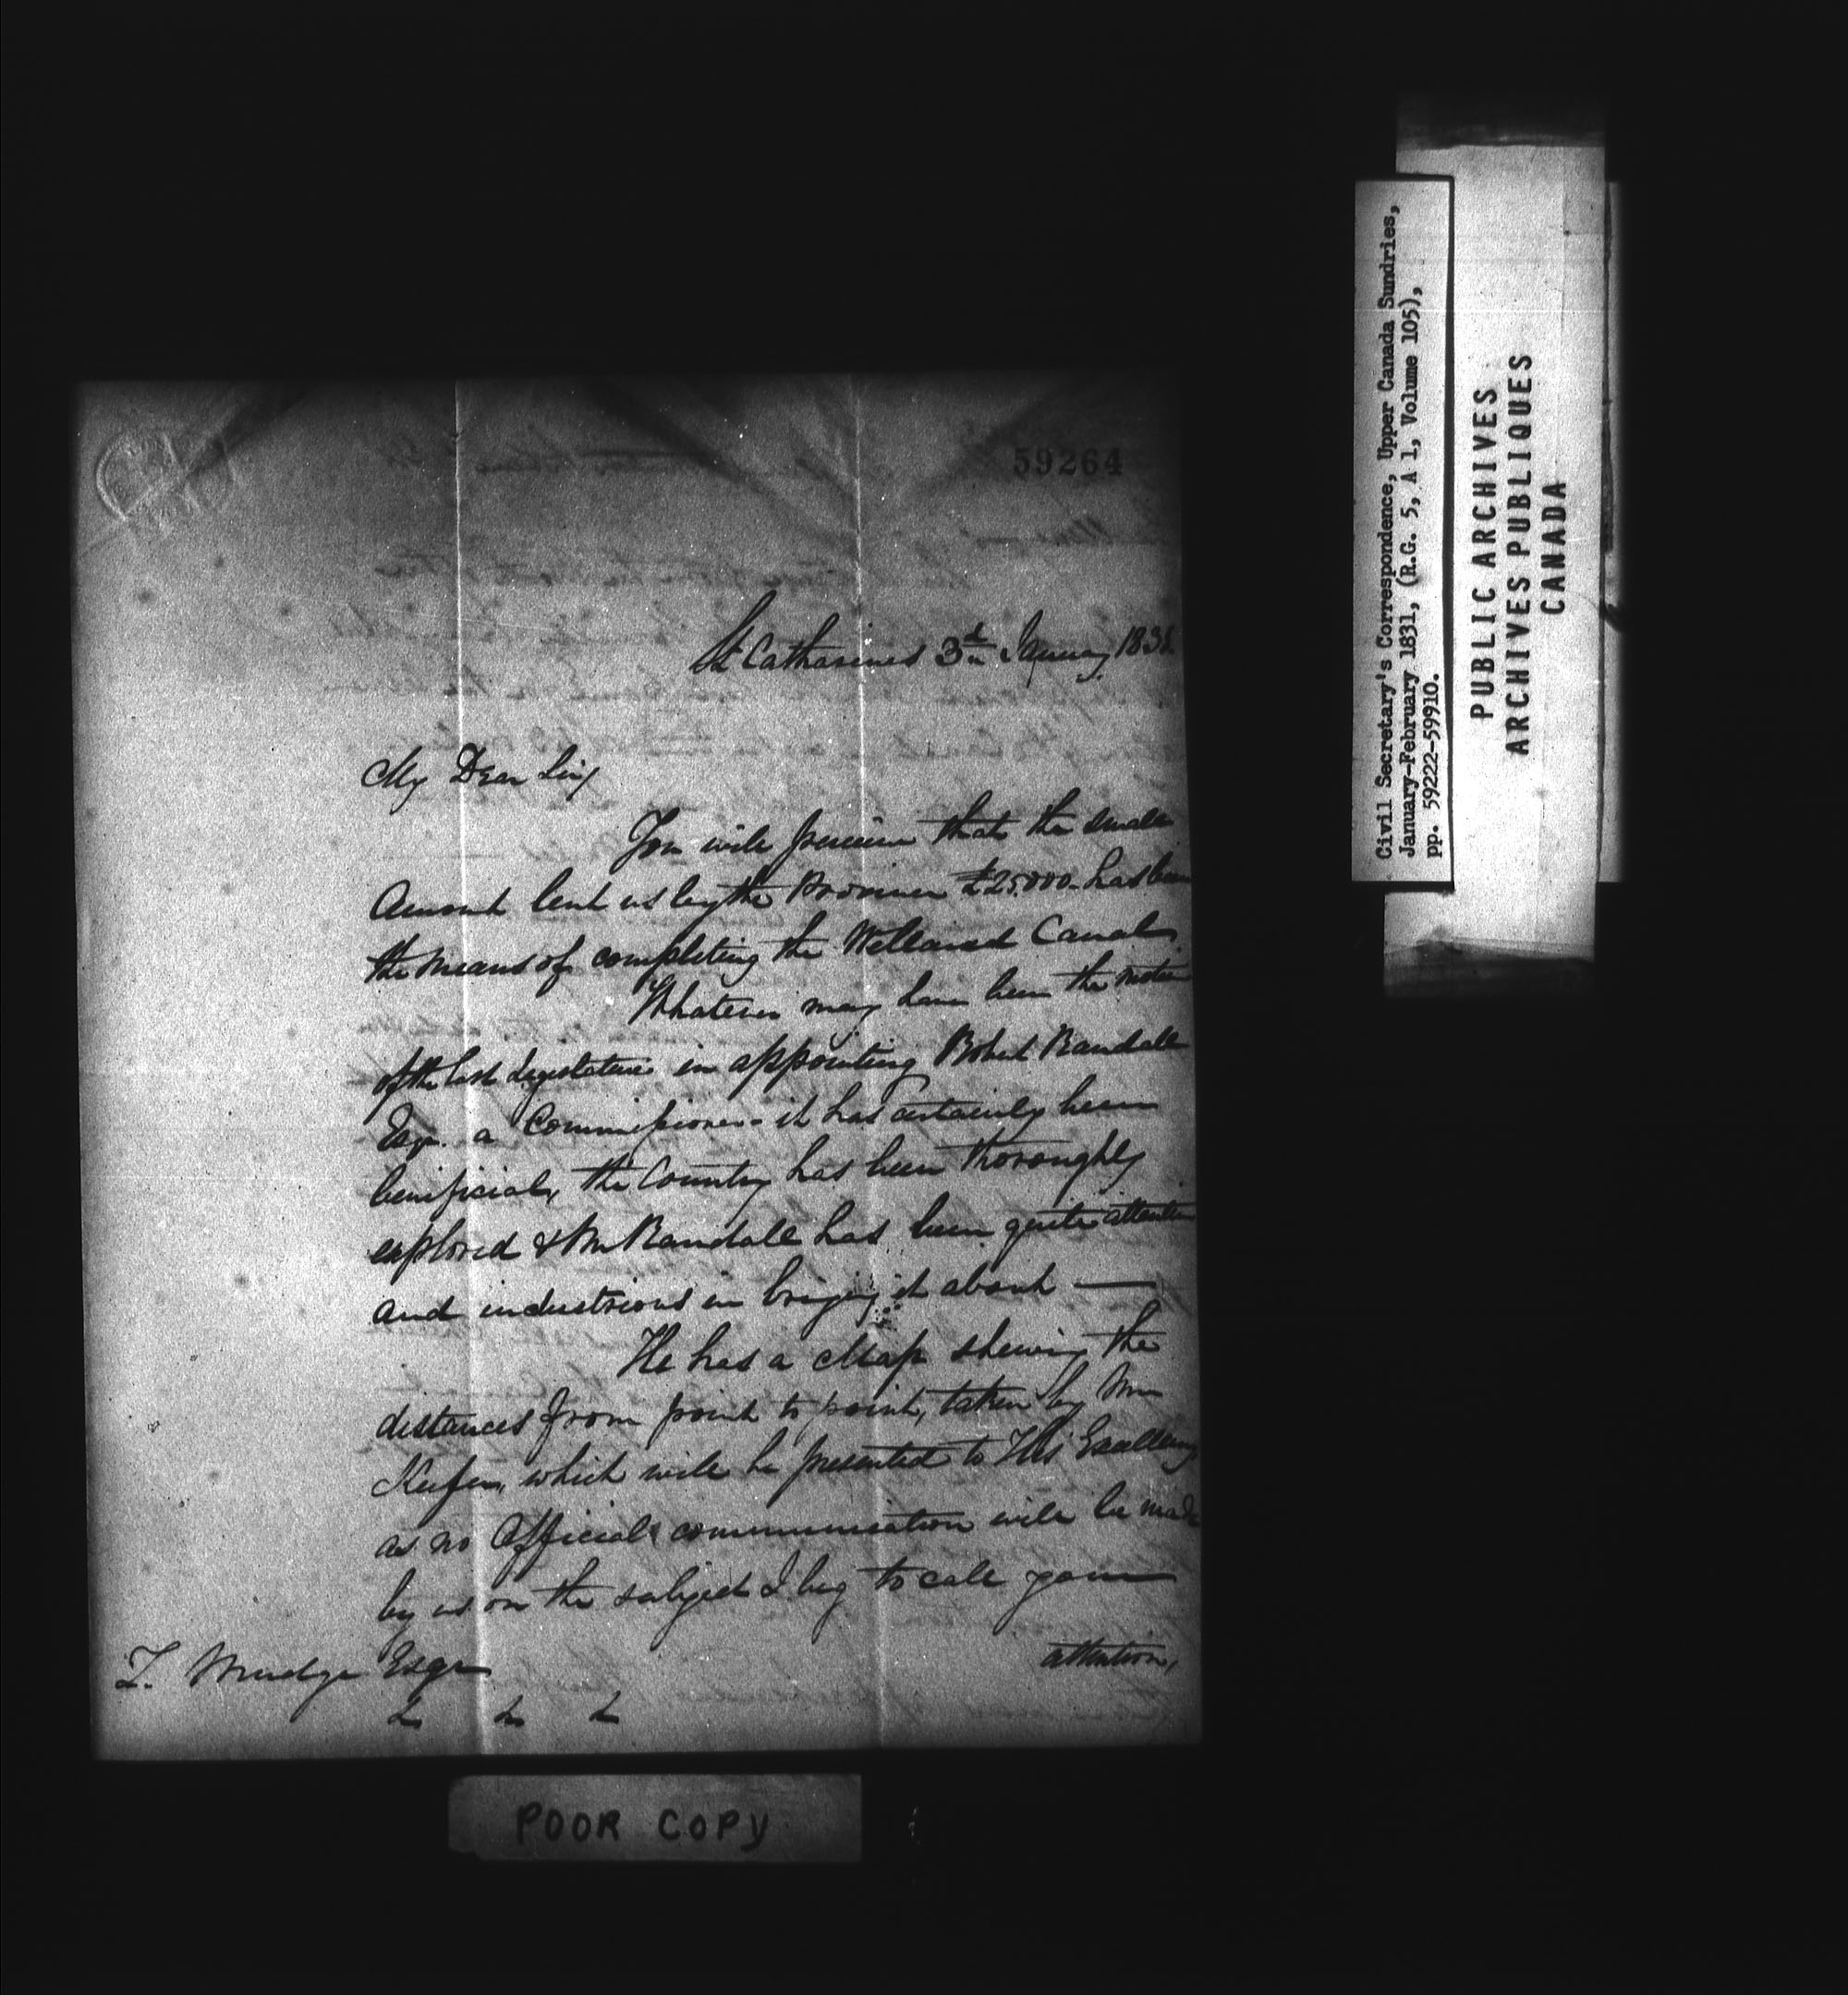 59264
St Catharines 3d January 1831
My Dear Sir,
You will perceive that the small
Amount lent us by the Province £25.000 has been
the means of completing the Welland Canal.
Whatever may have been the motive
of the last Legislature in appointing Robert Randall
Esqr. a Commissioner - it has certainly been
benificial, the Country has been thoroughly
explored & Mr Randall has been quite attentive
and industrious in bringing it about —
He has a Map shewing the
distances from point to point, taken by Mr
Keefer, which will be presented to His Excellency
as no Official communication will be made
by us on the subject I beg to call your
attention,
Z. Mudge Esqr
&c &c &c
POOR COPY
Civil Secretary's Correspondence, Upper Canada Sundries,
January-February 1831, (R.G. 5, A 1, Volume 105),
pp. 59222-59910.
PUBLIC ARCHIVES
ARCHIVES PUBLIQUES
CANADA